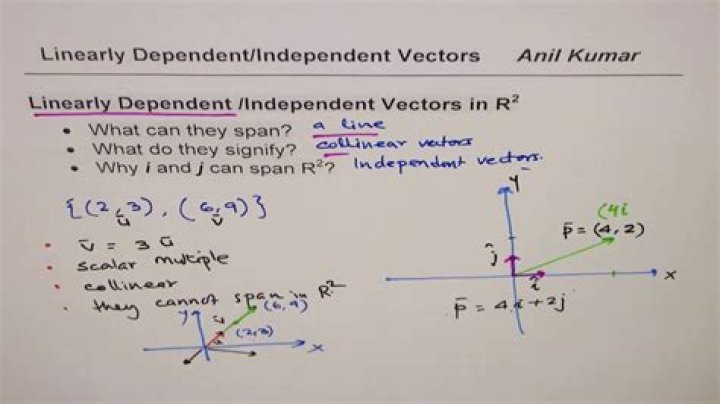 Linearly Dependent/Independent Vectors Anil Kumar
Linearly Dependent /Independent Vectors in R²
• What can they span? a line
• What do they signify? collinear vectors
• Why i and j can span R²? Independent vectors.
{(2,3), (6,9)}
ū v̄
• v̄ = 3 ū
• scalar multiple
• collinear
• they cannot span in R²
y
(6,9)
(2,3)
x
y
(4i
p̄ = (4,2)
ĵ
î
x
p̄ = 4i + 2j